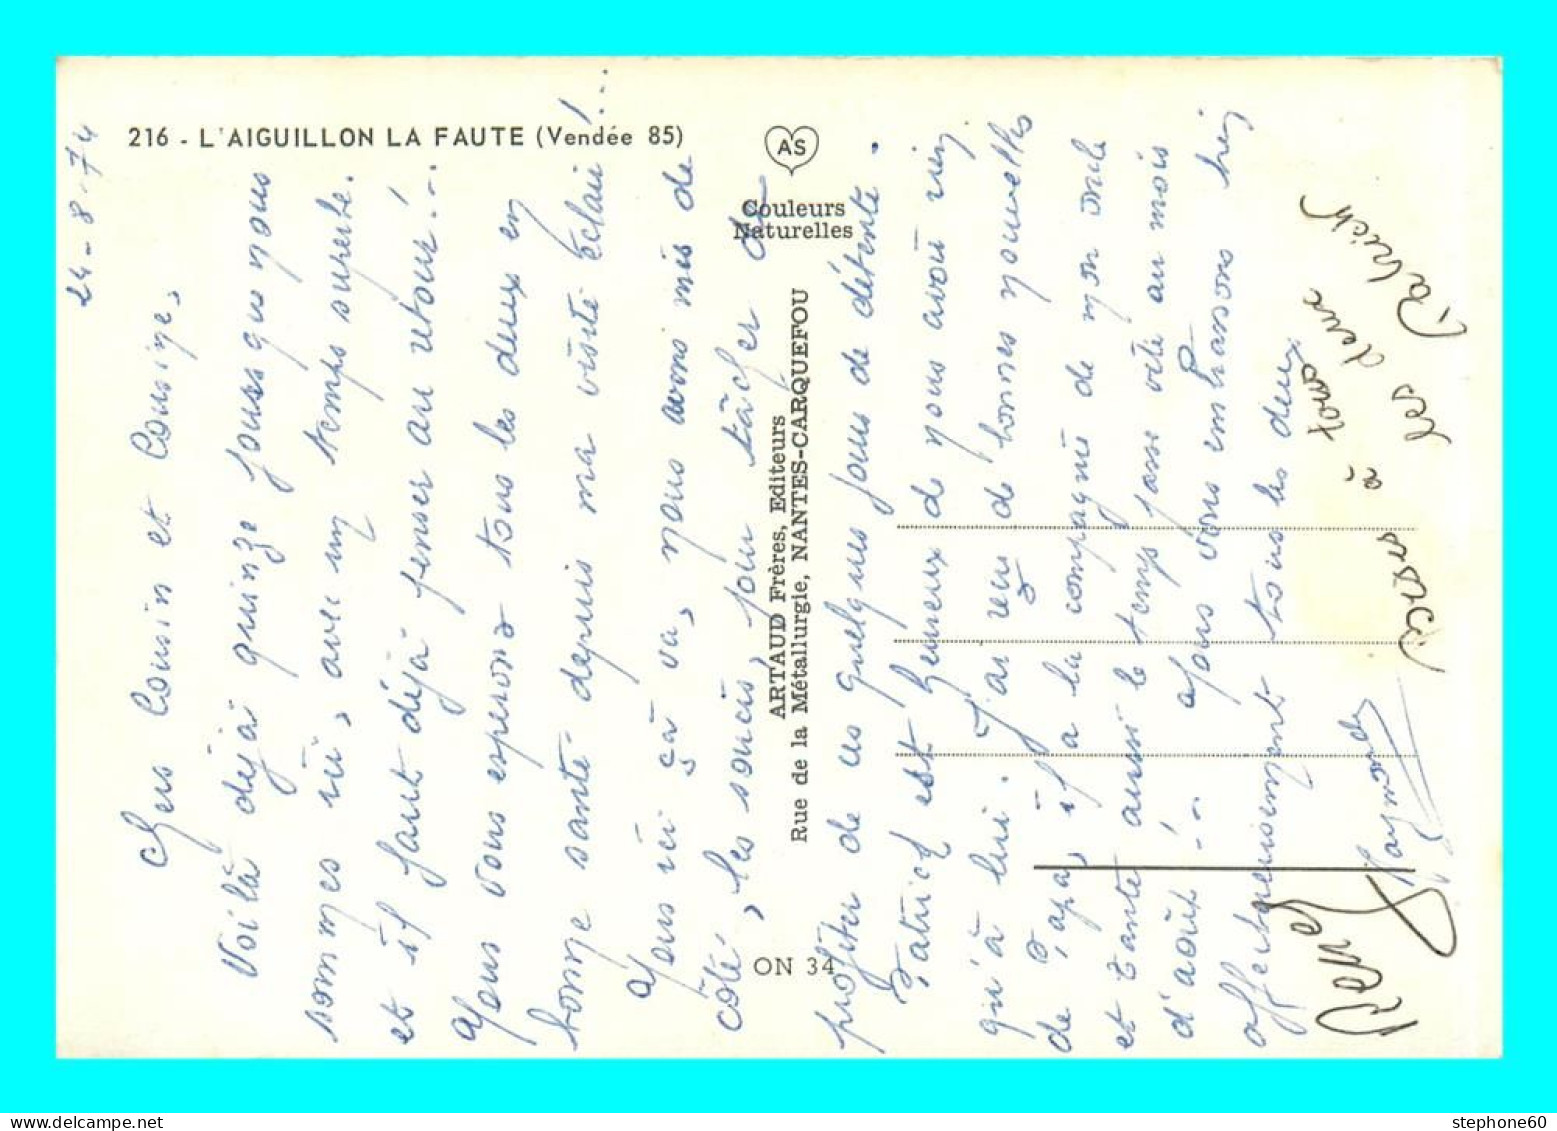 216 - L'AIGUILLON LA FAUTE (Vendée 85)
AS
Couleurs
Naturelles
ARTAUD Frères, Editeurs
Rue de la Métallurgie, NANTES-CARQUEFOU
ON 34
24-8-74
Chers Cousin et Cousine,
Voilà déjà quinze jours que nous
sommes ici, avec un temps superbe.
et il faut déjà penser au retour!..
Nous vous espérons tous les deux en
bonne santé depuis ma visite éclair!...
Nous ici çà va, nous avons mis de
côté, les soucis, pour tâcher de
profiter de ces quelques jours de détente.
Patrick est heureux de nous avoir rien
qu'à lui. J'ai reçu de bonnes nouvelles
de Papa, il a la compagnie de mon oncle
et tante aussi le temps passe vite au mois
d'août!.. Nous vous embrassons bien
affectueusement tous les deux.
Raymonde
René
Bises à tous
les deux
Patrick
stephone60